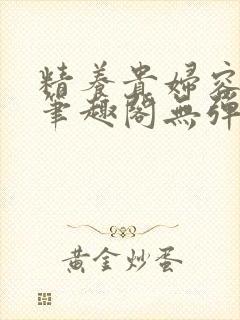 精養貴婦容
筆趣閣無彈
黃金炒蛋